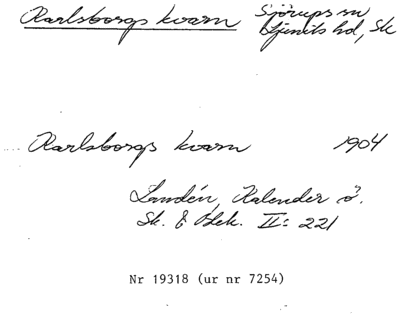 Karlsborgs kvarn Sjörups sn
Ljunits hd, Sk
Karlsborgs kvarn 1904
Landén, Kalender ö.
Sk. & Blek. II: 221
Nr 19318 (ur nr 7254)